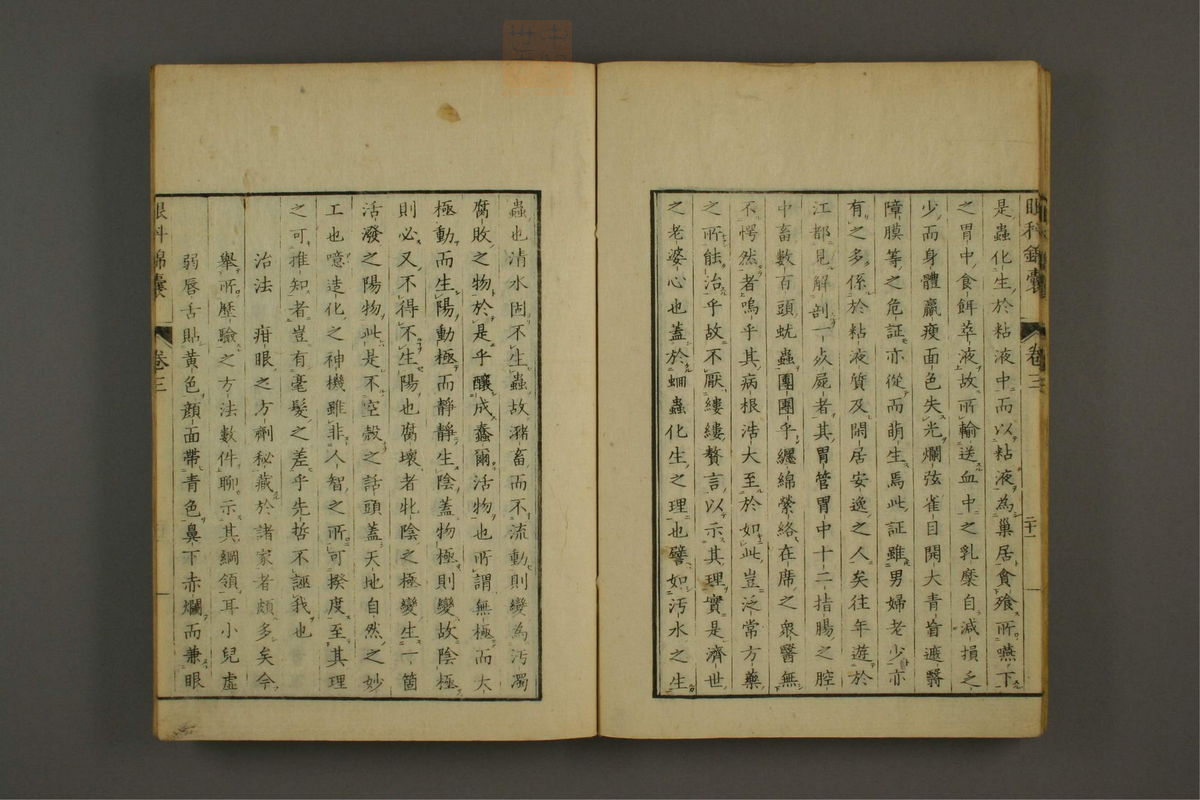 眼科錦囊 卷三 二十一
是蟲化生於粘液中而以粘液為巢居食飱所嚥下
之胃中食餌萃液故所輸送血中之乳糜自減損乏
少而身體羸瘦面色失光爛弦雀目開大青盲遮翳
障膜等之危証亦從而萌生焉此証雖男婦老少亦
有之多係於粘液質及閑居安逸之人矣往年遊於
江都見解剖一尖屍者其胃管胃中十二指腸之腔
中畜數百頭蚘蟲團團乎纒綿縈絡在席之衆醫無
不愕然者嗚乎其病根浩大至於如此豈泛常方藥
之所能治乎故不厭縷縷贅言以示其理實是濟世
之老婆心也蓋於蛔蟲化生之理也譬如汚水之生
蟲也清水固不生蟲故瀦畜而不流動則變為汚濁
腐敗之物於是乎釀成蠢爾活物也所謂無極而太
極動而生陽動極而靜靜生陰蓋物極則變故陰極
則必又不得不生陽也腐壞者牝陰之極變生一箇
活潑之陽物此是不空殼之話頭蓋天地自然之妙
工也噫造化之神機雖非人智之所可揆度至其理
之可推知者豈有毫髮之差乎先哲不誣我也
治法 疳眼之方劑秘藏於諸家者頗多矣今
舉所歷驗之方法數件聊示其綱領耳小兒虛
弱唇舌貼黃色顏面帶青色鼻下赤爛而兼眼
眼科錦囊 卷三